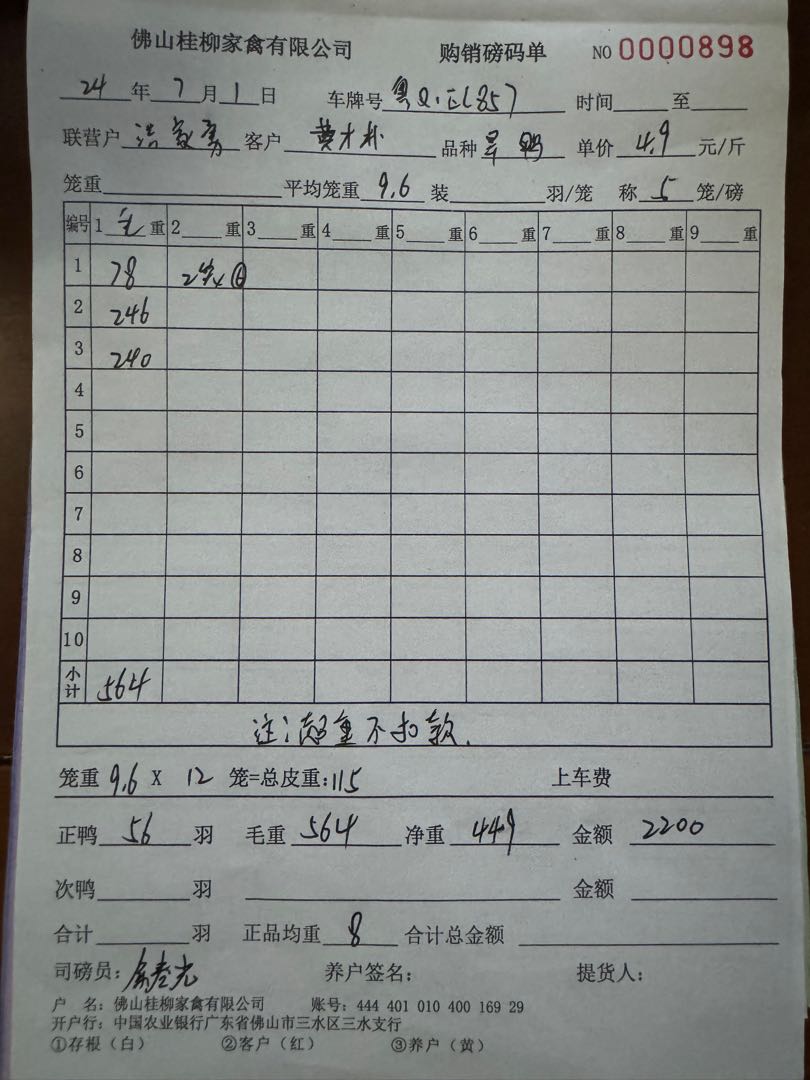 佛山桂柳家禽有限公司 购销磅码单 NO 0000898
24 年 7 月 1 日 车牌号 粤Q 857 时间 至
联营户 家勇 客户 黄才 品种 旱鸭 单价 4.9 元/斤
笼重 平均笼重 9.6 装 羽/笼 称 5 笼/磅
编号 1 毛 重 2 重 3 重 4 重 5 重 6 重 7 重 8 重 9 重
1 78
2 246
3 240
4
5
6
7
8
9
10
小计 564
注:超重不扣款.
笼重 9.6 X 12 笼=总皮重: 115 上车费
正鸭 56 羽 毛重 564 净重 449 金额 2200
次鸭 羽 金额
合计 羽 正品均重 8 合计总金额
司磅员: 养户签名: 提货人:
户 名: 佛山桂柳家禽有限公司 账号: 444 401 010 400 169 29
开户行: 中国农业银行广东省佛山市三水区三水支行
①存根(白) ②客户(红) ③养户(黄)